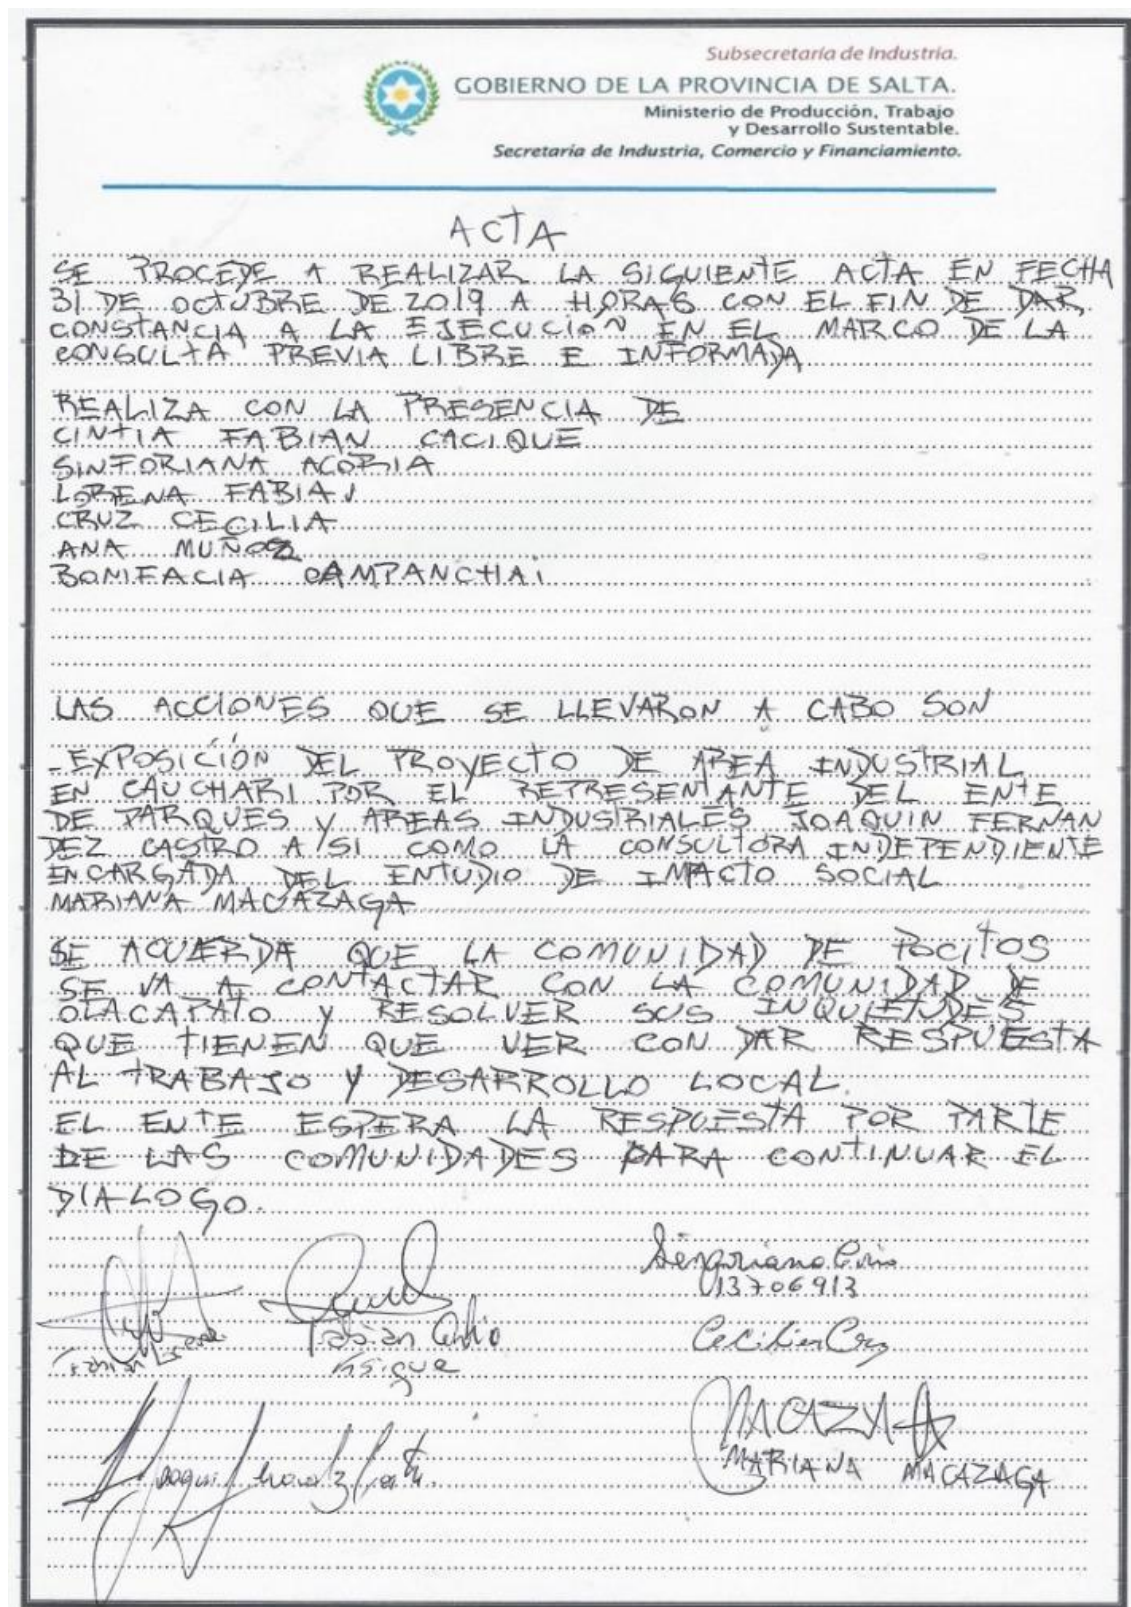 Subsecretaría de Industria.
GOBIERNO DE LA PROVINCIA DE SALTA.
Ministerio de Producción, Trabajo
y Desarrollo Sustentable.
Secretaría de Industria, Comercio y Financiamiento.
ACTA
SE PROCEDE A REALIZAR LA SIGUIENTE ACTA EN FECHA
31 DE OCTUBRE DE 2019 A HORAS CON EL FIN DE DAR
CONSTANCIA A LA EJECUCIÓN EN EL MARCO DE LA
CONSULTA PREVIA LIBRE E INFORMADA
REALIZA CON LA PRESENCIA DE
CINTIA FABIAN CACIQUE
SINFORIANA ACORIA
LORENA FABIAN
CRUZ CECILIA
ANA MUÑOZ
BONIFACIA CAMPANCHAI
LAS ACCIONES QUE SE LLEVARON A CABO SON
- EXPOSICIÓN DEL PROYECTO DE AREA INDUSTRIAL
EN CAUCHARI POR EL REPRESENTANTE DEL ENTE
DE PARQUES Y AREAS INDUSTRIALES JOAQUIN FERNAN
DEZ CASTRO A SI COMO LA CONSULTORA INDEPENDIENTE
ENCARGADA DEL ENTUDIO DE IMPACTO SOCIAL
MARIANA MACAZAGA
SE ACUERDA QUE LA COMUNIDAD DE POCITOS
SE VA A CONTACTAR CON LA COMUNIDAD DE
OLACAPATO Y RESOLVER SUS INQUIETUDES
QUE TIENEN QUE VER CON DAR RESPUESTA
AL TRABAJO Y DESARROLLO LOCAL.
EL ENTE ESPERA LA RESPUESTA POR PARTE
DE LAS COMUNIDADES PARA CONTINUAR EL
DIALOGO.
13706913
Fabian
Cecilia Cruz
MACAZAGA
MARIANA MACAZAGA